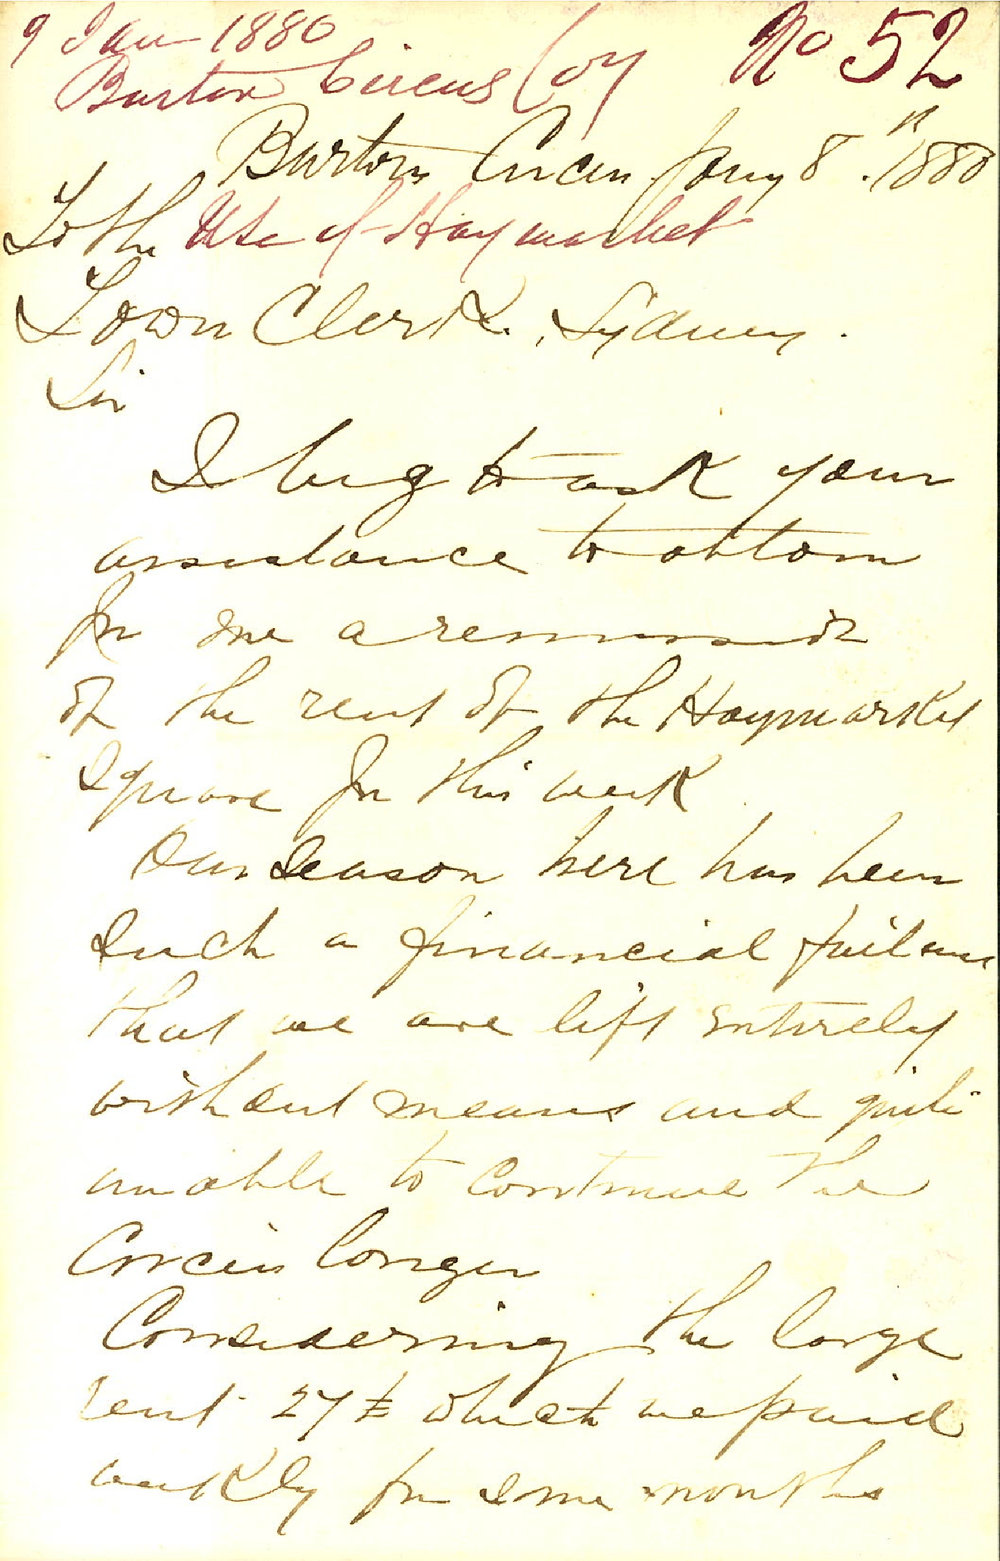 9 Jan 1880
Burton Circus Coy
No 52
Burtons Circus Jany 8th 1880
To the
Use of Haymarket
Town Clerk, Sydney.
Sir
I beg to ask your
assistance to obtain
for me a remission
of the rent of the Haymarket
Square for this week
Our Season here has been
such a financial failure
that we are left entirely
without means and quite
unable to continue the
Circus longer
Considering the large
rent 27£ which we paid
weekly for some months